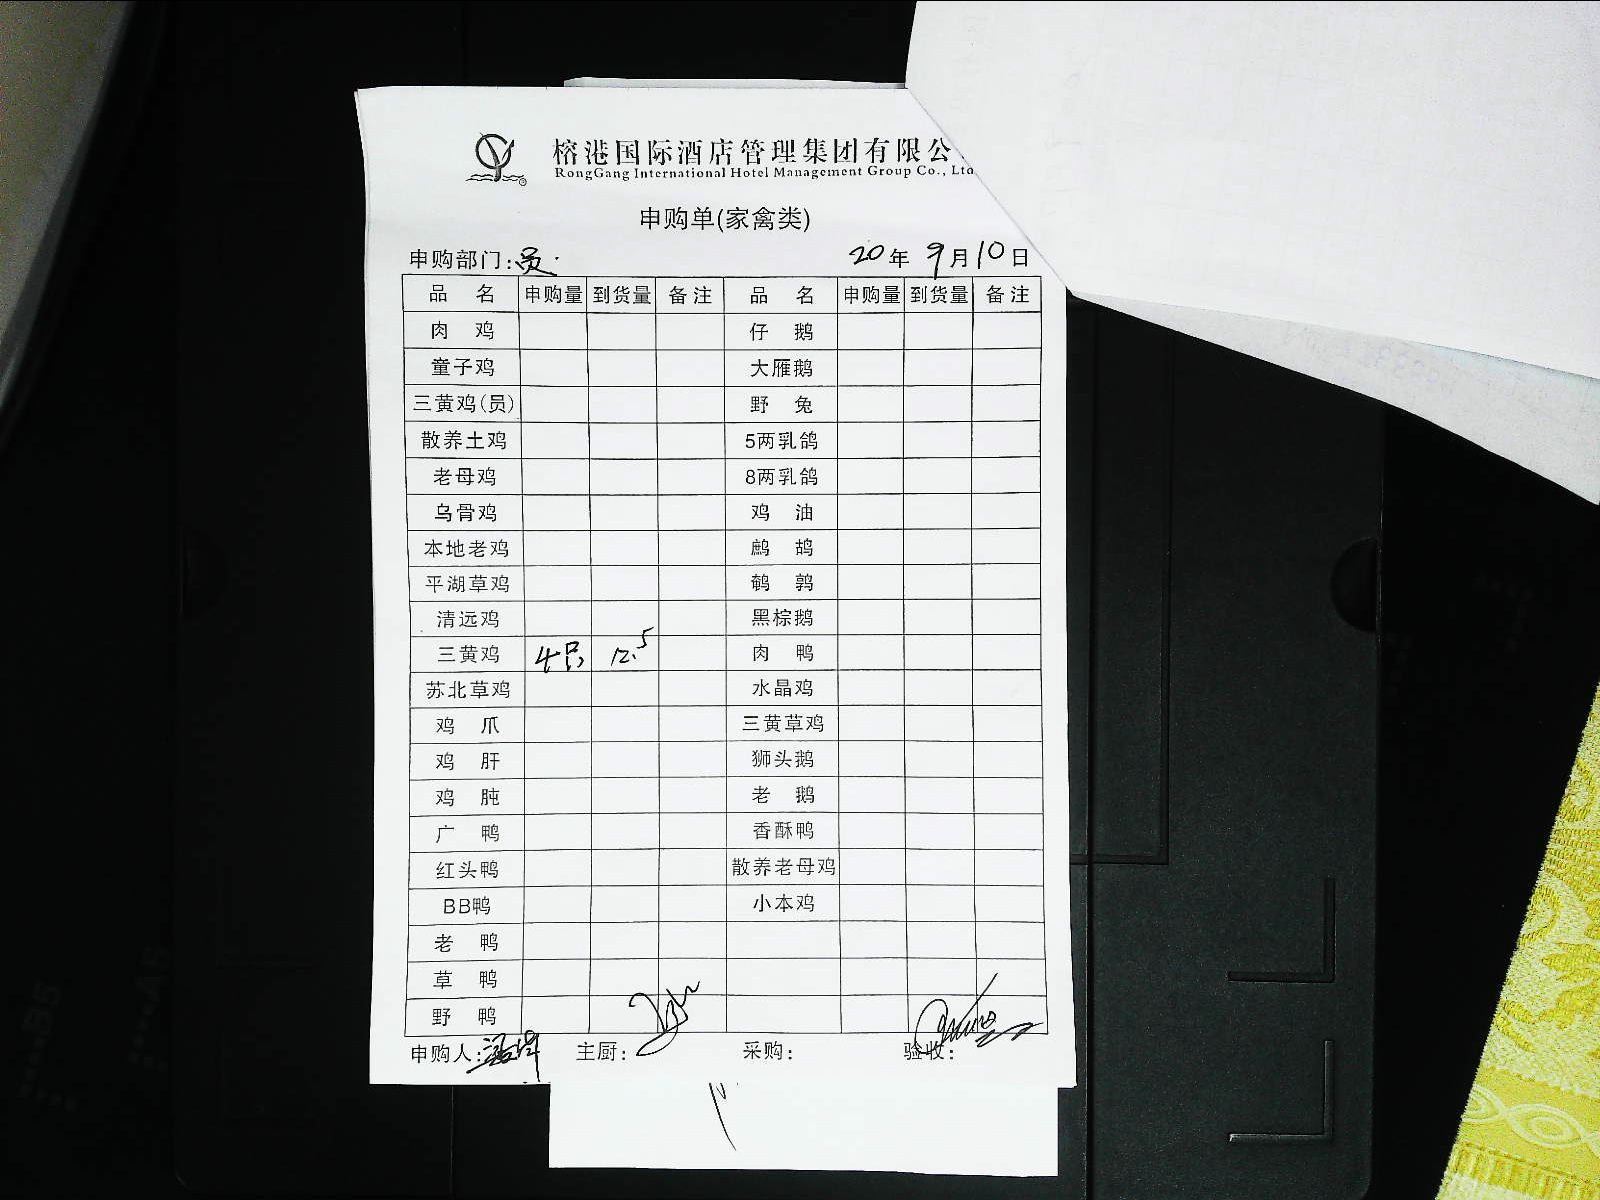 榕港国际酒店管理集团有限公
RongGang International Hotel Management Group Co., Ltd
申购单(家禽类)
申购部门:员. 20年9月10日
品名 申购量 到货量 备注 品名 申购量 到货量 备注
肉鸡 仔鹅
童子鸡 大雁鹅
三黄鸡(员) 野兔
散养土鸡 5两乳鸽
老母鸡 8两乳鸽
乌骨鸡 鸡油
本地老鸡 鹧鸪
平湖草鸡 鹌鹑
清远鸡 黑棕鹅
三黄鸡 4只 12.5 肉鸭
苏北草鸡 水晶鸡
鸡爪 三黄草鸡
鸡肝 狮头鹅
鸡肫 老鹅
广鸭 香酥鸭
红头鸭 散养老母鸡
BB鸭 小本鸡
老鸭
草鸭
野鸭
申购人: 主厨: 采购: 验收: